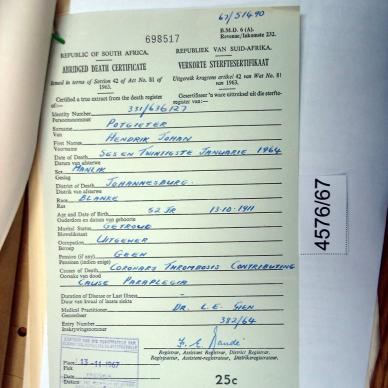 67/51490
698517
B.M.D. 6 (A).
Revenue/Inkomste 232.
REPUBLIC OF SOUTH AFRICA. REPUBLIEK VAN SUID-AFRIKA.
ABRIDGED DEATH CERTIFICATE VERKORTE STERFTESERTIFIKAAT
Issued in terms of Section 42 of Act No. 81 of 1963. Uitgereik kragtens artikel 42 van Wet No. 81 van 1963.
Certified a true extract from the death register of:— Gesertifiseer 'n ware uittreksel uit die sterfteregister van:—
Identity Number 331/636/127
Persoonsnommer
Surname POTGIETER
Van
First Names HENDRIK JOHAN
Voorname
Date of Death SES EN TWINTIGSTE JANUARIE 1964
Datum van afsterwe
Sex MANLIK
Geslag
District of Death JOHANNESBURG
Distrik van afsterwe
Race BLANKE
Ras
Age and Date of Birth 52 JR 13-10-1911
Ouderdom en datum van geboorte
Marital Status GETROUD
Huwelikstaat
Occupation UITGEWER
Beroep
Pension (if any) GEEN
Pensioen (indien enige)
Causes of Death CORONARY THROMBOSIS CONTRIBUTING
Oorsake van dood CAUSE PARAPLEGIA
Duration of Disease or Last Illness —
Duur van kwaal of laaste siekte
Medical Practitioner DR. L.E.
Geneesheer
Entry Number 382/64
Inskrywingsnommer
Registrar, Assistant Registrar, District Registrar.
Registrateur, Assistent-registrateur, Distriksregistrateur.
Place
Plek
Date 13-11-1967
Datum
25c
4576/67